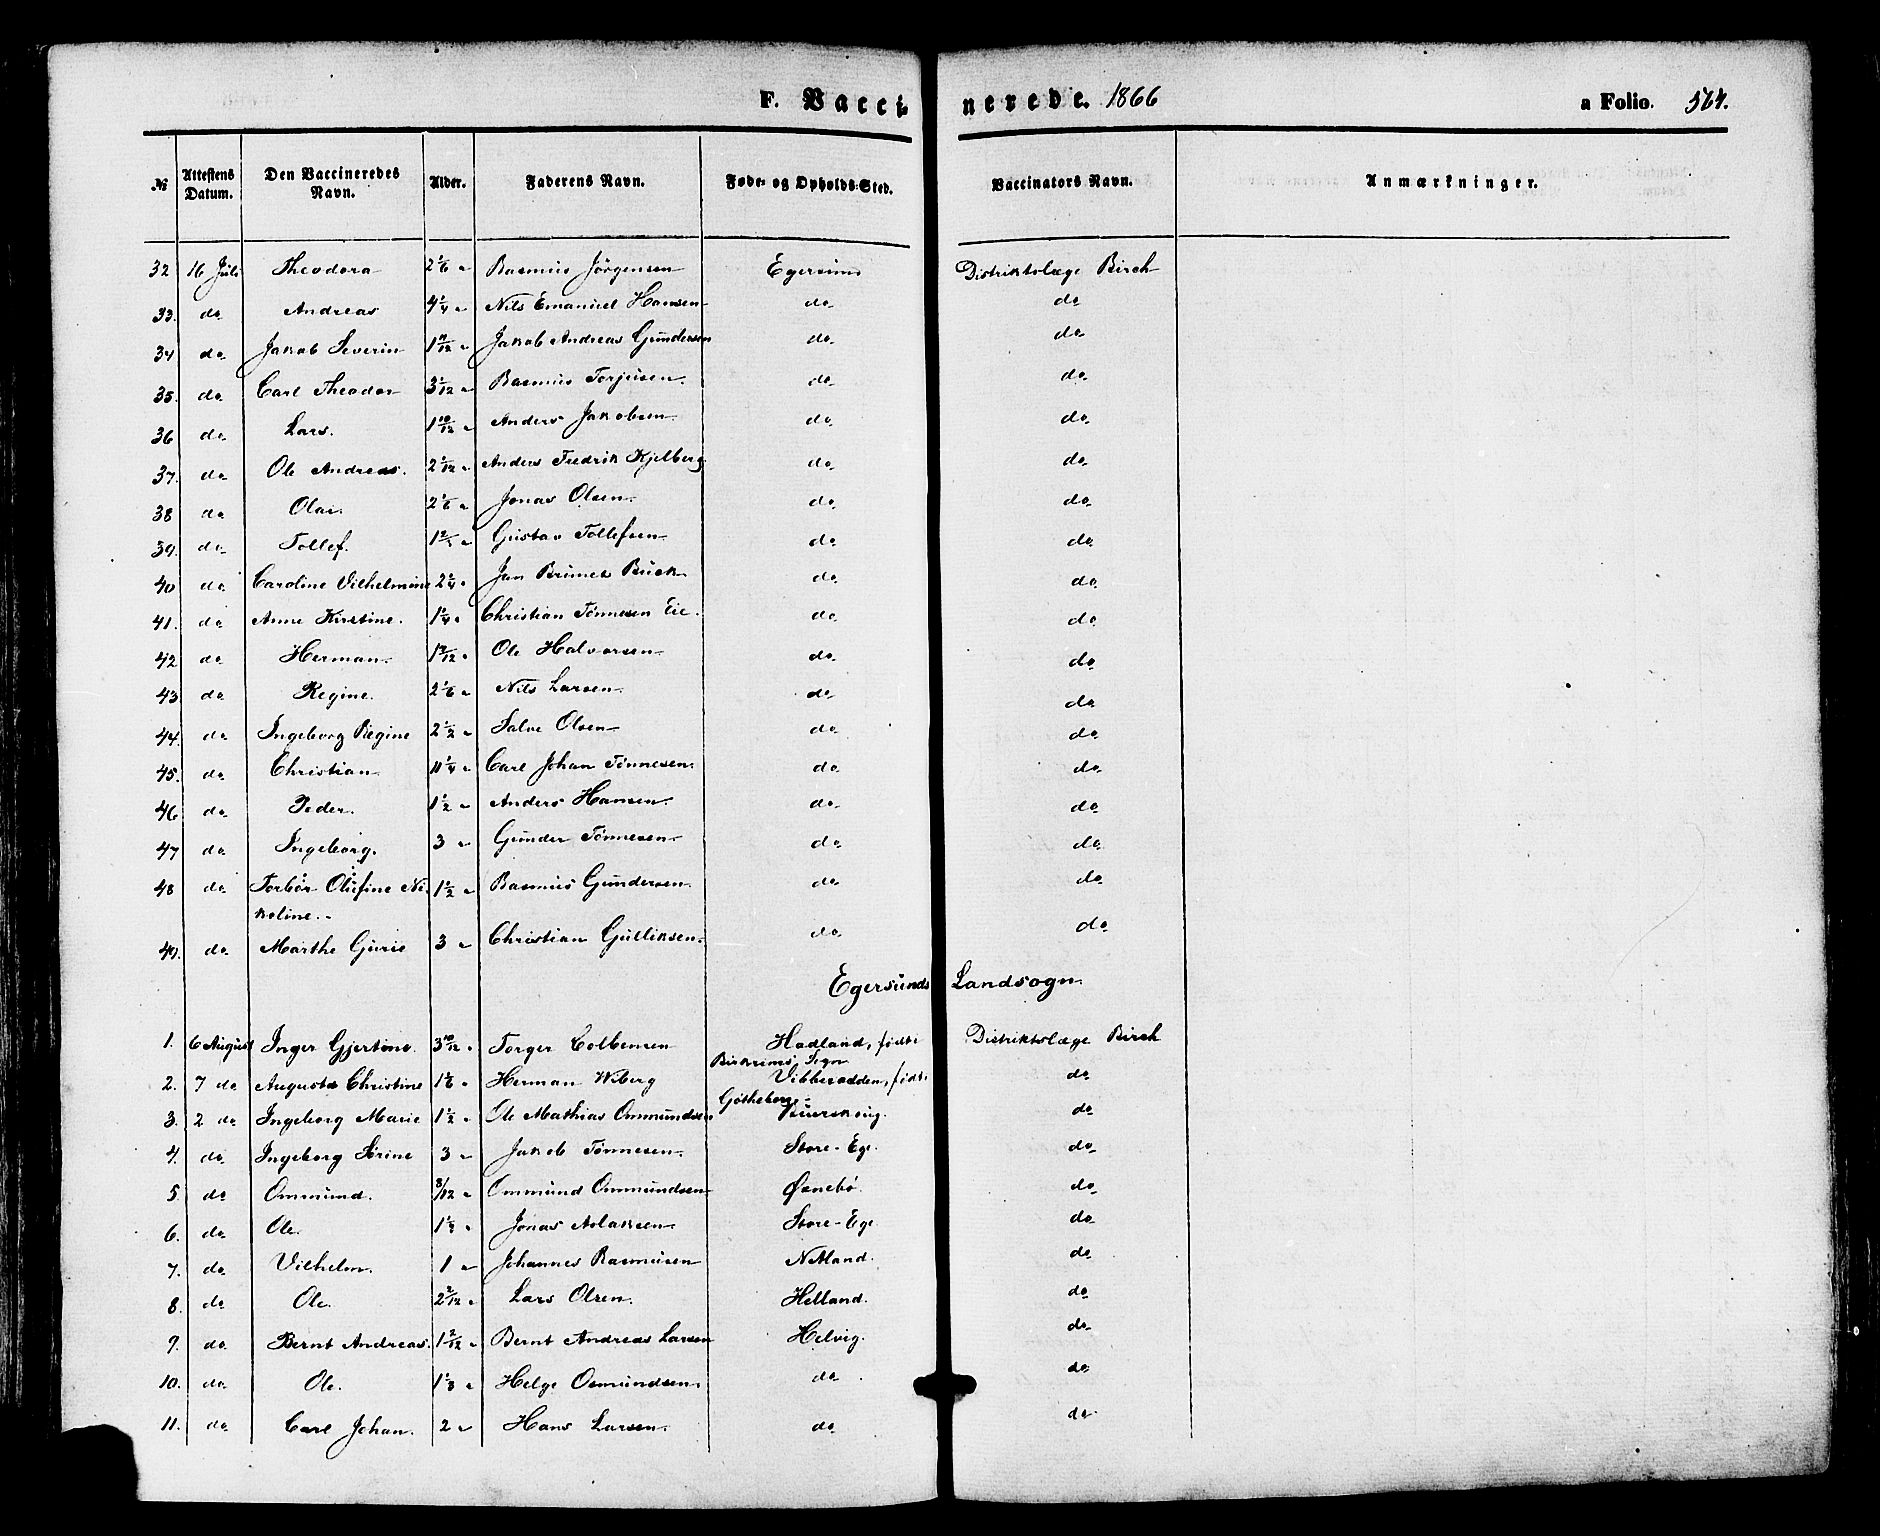 F. Vaccinerede. 1866 a Folio. 564.
№ Attestens Datum. Den Vaccineredes Navn. Alder. Faderens Navn. Føde- og Opholds-Sted. Vaccinators Navn. Anmærkninger.
32 16 Juli Theodora 2 1/6 " Rasmus Jörgensen Egersund Distriktslæge Birch
33. do Andreas 4 1/4 " Nils Emanuel Hansen do do
34 do Jakob Severin 1 11/12 " Jakob Andreas Gundersen do do
35. do Carl Theodor 3 1/12 " Rasmus Torjusen. do do
36 do Lars. 1 10/12 " Anders Jakobsen do do
37. do Ole Andreas. 2 1/12 " Anders Fredrik Kjelberg do do
38 do Olai. 2 1/6 " Jonas Olsen. do do
39. do Tollef. Gustav Tollefsen do do
40 do Caroline Vilhelmine 2 1/4 " Jan Buck do do
41. do Anne Kirstine. 1 1/4 " Christian Tönnesen Eie. do do
42 do Herman. Ole Halvorsen do do
43 do Regine. 2 1/6 " Nils Larsen. do do
44. do Ingeborg Regine 2 1/2 " Salve Olsen do do
45. do Christian 11 1/4 " Carl Johan Tönnesen. do do
46 do Peder. 1 1/2 " Anders Hansen. do do
47 do Ingeborg. 3 " Gunder Tönnesen do do
48 do Torbör Olufine Ni- 1 1/2 " Rasmus Gundersen. do do
koline.
49. do Marthe Gurie 3 " Christian Gulliksen. do do
Egersunds Landsogn.
1. 6 August Inger Gjertine. 3 10/12 " Torger Colbensen Hadland, födt i Distriktslæge Birch
Birkrims Sogn
2. 7 do Augusta Christine 1 1/6 " Herman Wiberg Vibberodden, födt i do
Götheborg.
3. 2 do Ingeborg Marie 1 1/2 " Ole Mathias Ommundsen do
4. do Ingeborg Serine 3 " Jakob Tönnesen. Store-Ege. do
5. do Ommund. 8/12 " Ommund Ommundsen Øsnebö. do
6. do Ole. Jonas Aslaksen Store-Ege. do
7. do Vilhelm. 1 " Johannes Rasmusen Netland. do
8. do Ole. 2 2/12 " Lars Olsen. Helland. do
9. do Bernt Andreas. 1 2/12 " Bernt Andreas Larsen Helvig. do
10. do Ole. 1 1/3 " Helge Osmundsen. do do
11. do Carl Johan. 2 " Hans Larsen. do do